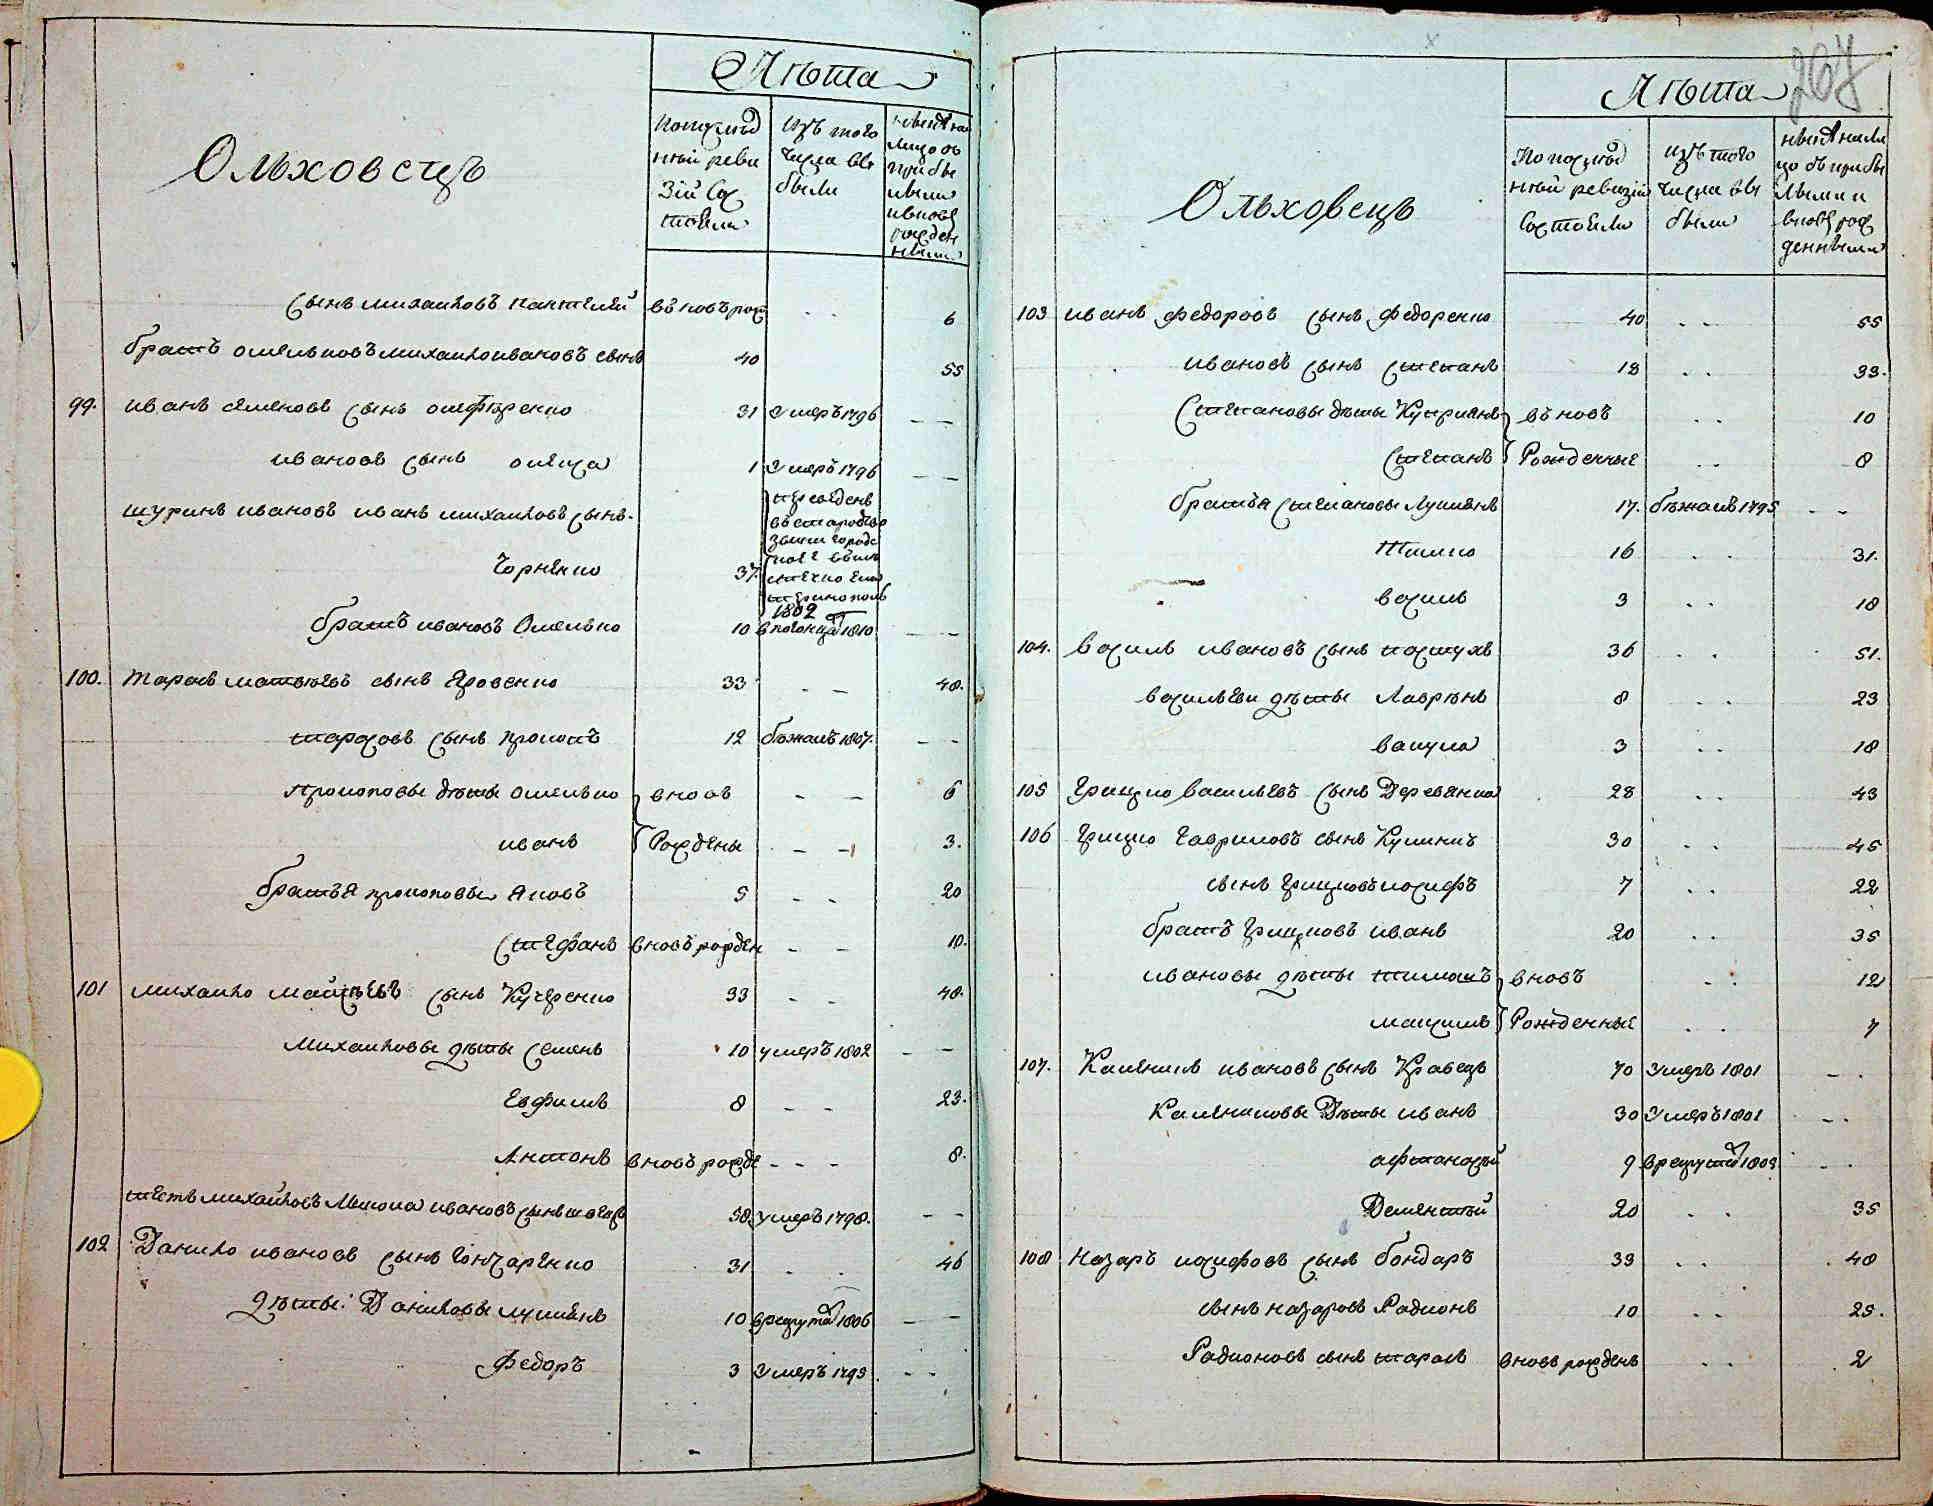 Лѣта
Ольховецъ
По последней ревизіи состояли
Изъ того числа выбыли
Ныне на лицо съ прибылыми и вновь рожденными
Сынъ михайловъ пантелей въновь рож 6
братъ омельковъ михайло ивановъ сынъ 40 55
99. иванъ семеновъ сынъ онофренко 31 Умеръ 1796
ивановъ сынъ 1 Умеръ 1796
шуринъ ивановъ иванъ михайловъ сынъ
переведенъ
въ
звенигородс
кое
1802
Чорненко 37
братъ ивановъ Омелько 10 в погонцы 1810
100. тарасъ матвѣевъ сынъ Яровенко 33 48.
тарасовъ сынъ прокопъ 12 бѣжалъ 1807.
прокоповы дѣты омелько вновь 6
иванъ Рождены 3.
братья прокоповы Яковъ 5 20
Стефанъ вновь рожден 10.
101 михайло сынъ Кучеренко 33 48.
Михайловы дѣты Семенъ 10 умеръ 1802
Евфимъ 8 23.
Антонъ вновь рожде 8.
тесть михайловъ ивановъ сынъ 58 умеръ 1798.
102 Данило ивановъ сынъ Гончаренко 31 46
дѣты Даниловы лукиянъ 10 в рекруты 1806
Федоръ 3 Умеръ 1795
267
Лѣта
Ольховецъ
По последней ревизіи состояли
Изъ того числа выбыли
Ныне на лицо съ прибылыми и вновь рожденными
103 иванъ федоровъ сынъ федоренко 40 55
ивановъ сынъ Степанъ 18 33.
Степановы дѣты Куприянъ въновь 10
Степанъ Рожденные 8
братья Степановы Лукиянъ 17. бѣжалъ 1795
Тимко 16 31.
василь 3 18
104. василь ивановъ сынъ пастухъ 36 51.
васильеви дѣты Лаврѣнъ 8 23
вакула 3 18
105 Грицко васильевъ сынъ Деревянка 28 43
106 Грицко гавриловъ сынъ Кулиничъ 30 45
сынъ Грицковъ иосифъ 7 22
братъ Грицковъ иванъ 20 35
ивановы дѣты тимошъ вновь 12
максимъ Рожденные 7
107. Каленикъ ивановъ сынъ Кравецъ 70 Умеръ 1801
Калениковы Дѣты иванъ 30 Умеръ 1801
афтанасий 9 в рекруты 1803
Дементий 20 35
108 назаръ иосифовъ сынъ бондаръ 33 48
сынъ назаровъ Радионъ 10 25.
Радионовъ сынъ тарасъ вновь рожденъ 2